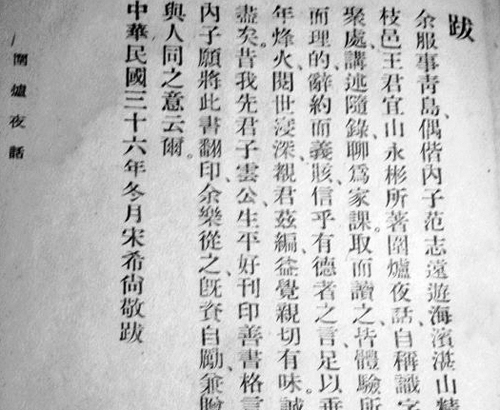 跋
余服事青島、偶偕內子范志遠遊海濱湛山精
枝邑王君宜山永彬所著圍爐夜話、自稱識字
聚處、講述隨錄、聊為家課。取而讀之、皆體驗所
而理的、辭約而義賅、信乎有德者之言、足以垂
年烽火、閱世寖深、覩君茲編、益覺親切有味。誠
盡矣。昔我先君子雲公、生平好刊印善書格言
內子願將此書翻印、余樂從之、旣資自勵、兼贈
與人同之意云爾。
中華民國三十六年冬月宋希尙敬跋
圍爐夜話